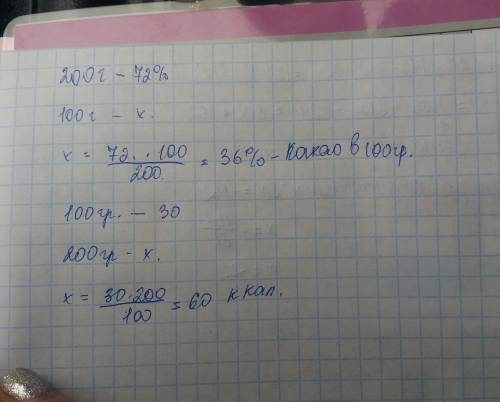 200г – 72%
100г – x.
x = 72 · 100 / 200 = 36% – какао в 100гр.
100гр. – 30
200гр – x.
x = 30·200 / 100 = 60 ккал.